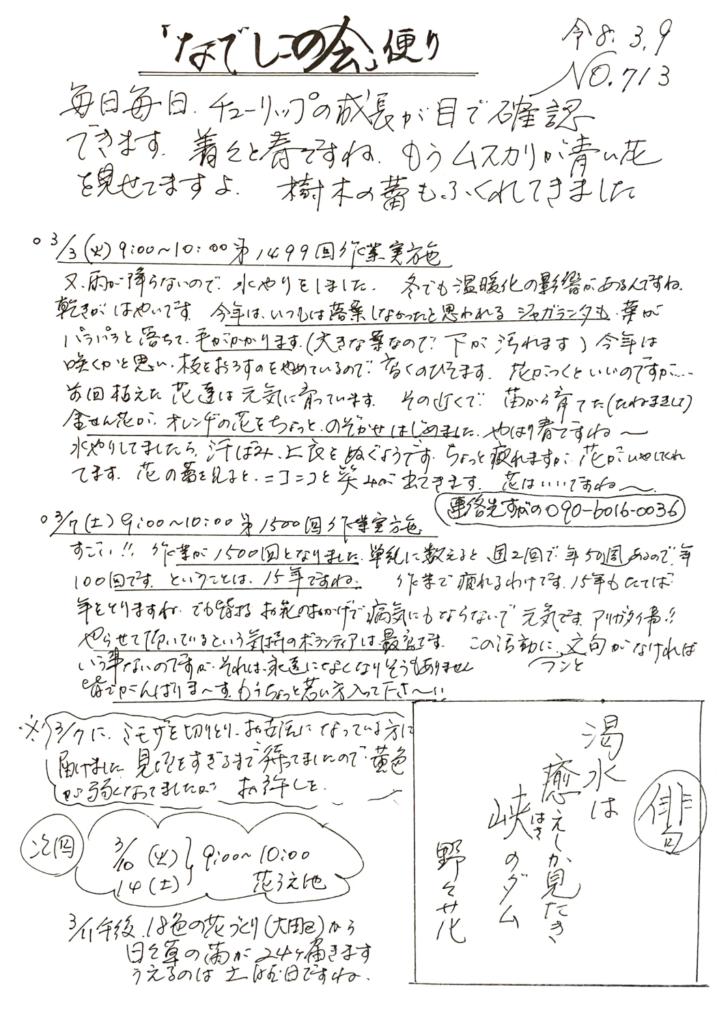 「なでしこの会」便り
令8.3.9
NO.713
毎日毎日、チューリップの成長が目で確認
できます。着々と春ですね。もうムスカリが青い花
を見せてますよ。樹木の蕾もふくれてきました
○3/3(火)9:00~10:00第1499回作業実施
又、雨が降らないので、水やりをしました。冬でも温暖化の影響があるんですね。
乾きがはやいです。今年は、いつもは落葉しなかったと思われるジャガランタも、葉が
パラパラと落ちて、手がかかります。(大きな葉なので、下が汚れます)今年は
咲くかと思い、枝をおろすのをやめているので、高くのびてます。花がつくといいのですが……
前回植えた花達は元気に育っています。その近くで、苗から育てた(たねまきして)
金せん花が、オレンヂの花をちょっと、のぞかせはじめました。やはり春ですね〜
水やりしてましたら、汗ばみ、上衣をぬぐようです。ちょっと疲れますが、花がいやしてくれ
てます。花の蕾を見ると、ニコニコと笑みが出てきます。花はいいですね〜
連絡先すがの090-6016-0036
○3/7(土)9:00~10:00第1500回作業実施
すごい!!作業が1500回となりました。単純に数えると週2回で年50週あるので、年
100回です。ということは、15年ですね。作業で疲れるわけです。15年もたてば
年をとりますね。でも皆様お花のおかげで病気にもならないで元気です。アリガタイ事!!
やらせて頂いているという気持のボランティアは最高です。この活動に、文句がなければ
いう事ないのですが、それは、永遠になくなりそうもありません フンと
皆でがんばりま〜す。もうちょっと若い方入って下さ〜い!!
※3/7に、ミモザを切りとり、お世話になっている方に
届けました。見頃をすぎるまで待ってましたので、黄色
が弱くなってましたが お許しを。
次回
3/10(火)
14(土)
9:00~10:00
花うえ他
3/11午後、18色の花づくり(大田区)から
日々草の苗が24ヶ届きます
うえるのは土曜日ですね。
俳句
渇水は
癒えしか見たき
峡のダム
はざ
野々花